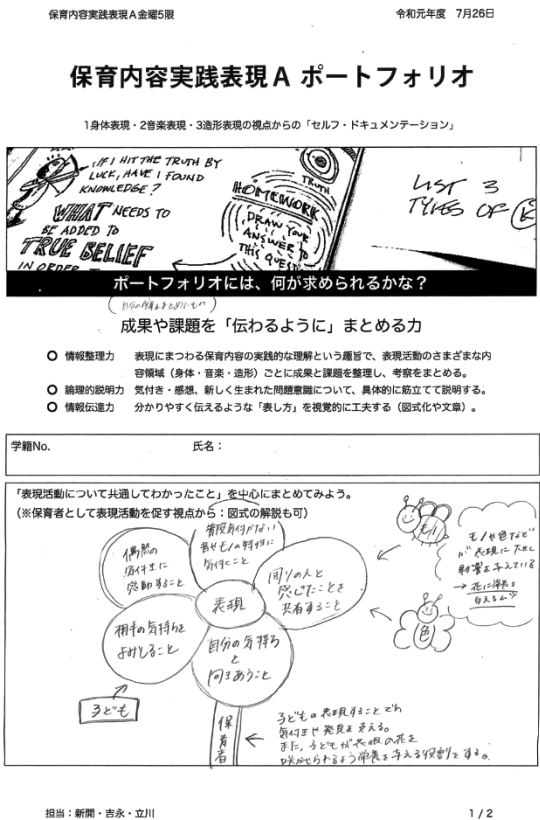 保育内容実践表現A金曜5限
令和元年度 7月26日
保育内容実践表現A ポートフォリオ
1身体表現・2音楽表現・3造形表現の視点からの「セルフ・ドキュメンテーション」
IF I HIT THE TRUTH BY
LUCK, HAVE I FOUND
KNOWLEDGE?
WHAT NEEDS TO
BE ADDED TO
TRUE BELIEF
IN ORDER
TRUTH
HOMEWORK
DRAW YOUR
ANSWER TO
THIS QUEST
LIST 3
TYPES OF K
ポートフォリオには、何が求められるかな？
成果や課題を「伝わるように」まとめる力
情報整理力 表現にまつわる保育内容の実践的な理解という趣旨で、表現活動のさまざまな内
容領域（身体・音楽・造形）ごとに成果と課題を整理し、考察をまとめる。
論理的説明力 気付き・感想、新しく生まれた問題意識について、具体的に筋立てて説明する。
情報伝達力 分かりやすく伝えるような「表し方」を視覚的に工夫する（図式化や文章）。
学籍No.
氏名：
「表現活動について共通してわかったこと」を中心にまとめてみよう。
（※保育者として表現活動を促す視点から：図式の解説も可）
普段気付かない
音やモノの特性に
気付くこと
偶然の
気付きに
感動すること
周りの人と
感じたことを
共有すること
表現
相手の気持ちを
よみとること
自分の気持ち
と
向きあうこと
子ども
保育者
モノ
色
モノや色など
が表現に大きな
影響を与えている
→花に栄養を
与える
子どもの表現することでの
気付きや発見を支える。
また、子どもが表現の花を
咲かせられるよう栄養を与える役割をする。
担当：新開・吉永・立川
1 / 2